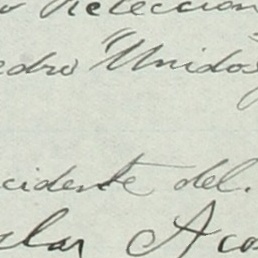 o Reelección
edro "Unidos
cidente del
slar Aco